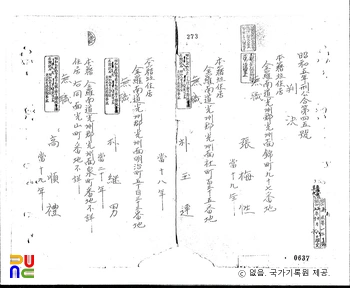 273
昭和五年刑公第四五號
判決
本籍並住居
全羅南道光州郡光州面錦町九十七番地
無職
張梅性
當十九年
本籍並住居
全羅南道光州郡光州面社町五十五番地
無職
朴玉連
當十七年
本籍並住居
全羅南道光州郡光州面明治町五丁目十三番地
無職
朴継男
當二十年
本籍 全羅南道光州郡光州面泉町番地不詳
住居 右同面光山町番地不詳
無職
高順禮
當十九年
0637
© 없음. 국가기록원 제공.